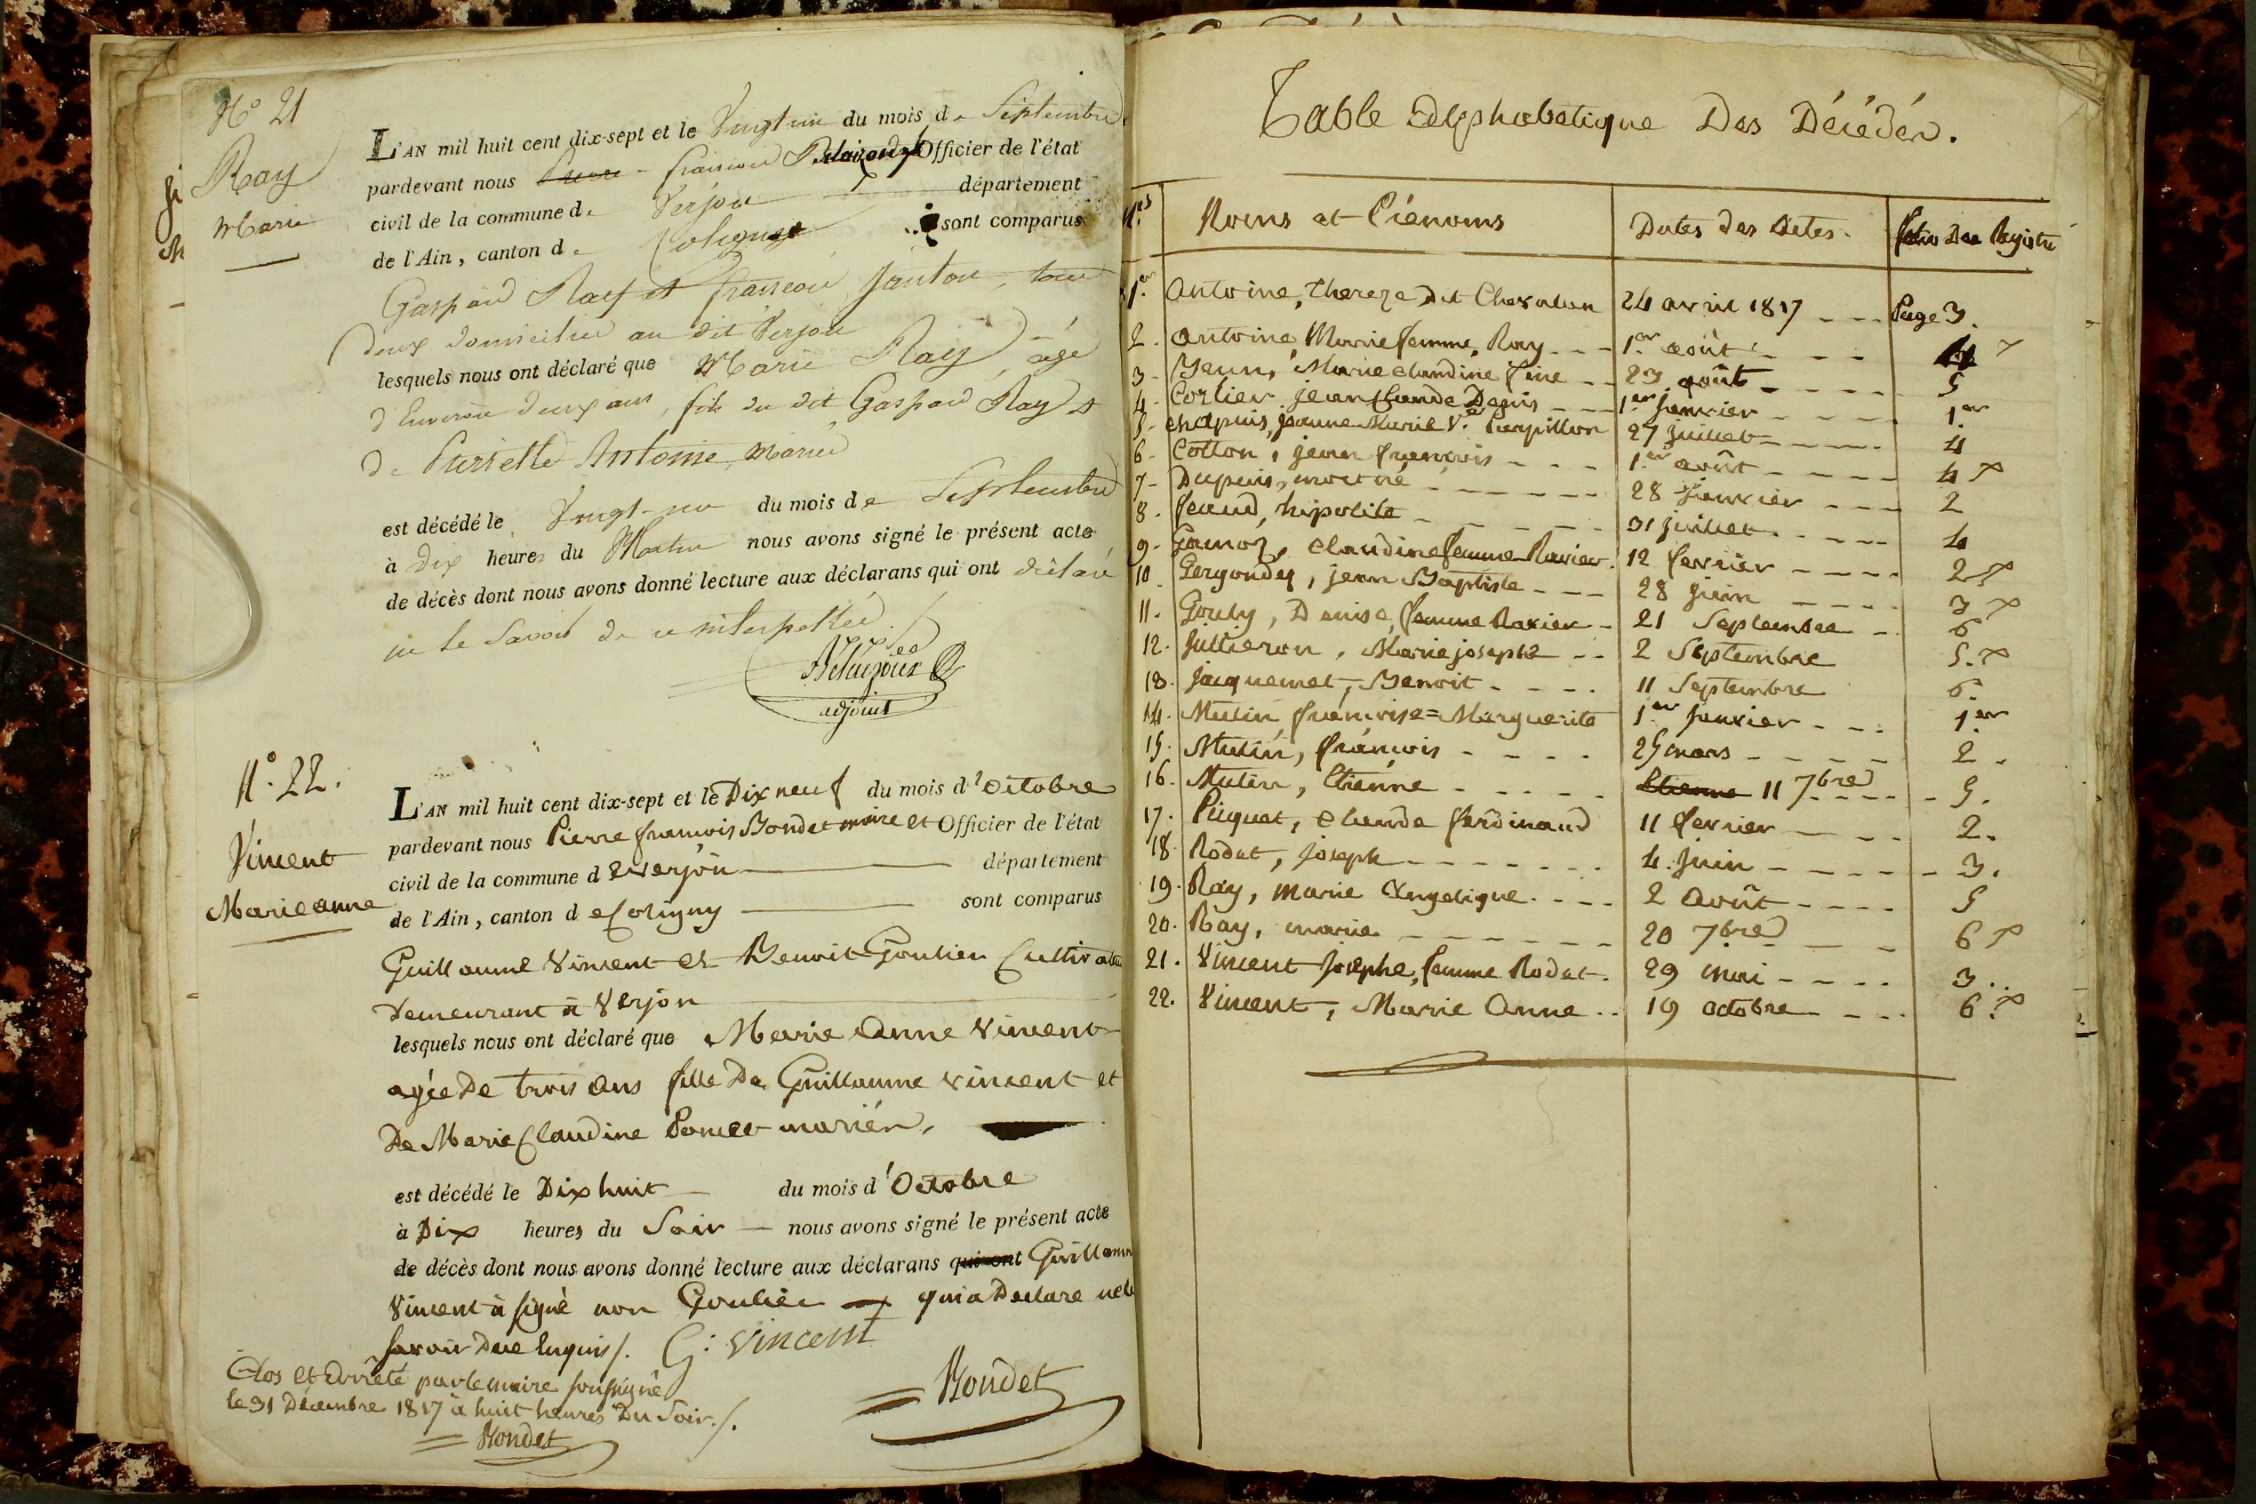 N° 21
Ray
Marie
L'AN mil huit cent dix-sept et le Vingt un du mois de Septembre
pardevant nous françois Officier de l'état
civil de la commune de Verjon département
de l'Ain, canton de Coligny sont comparus
Gaspard Ray et françois Janton, tous
deux domicilies au dit Verjon
lesquels nous ont déclaré que Marie Ray, âgé
d'Environ deux ans, fils du dit Gaspard Ray et
de Pierrette Antoine, mariés
est décédé le Vingt-un du mois de Septembre
à Dix heures du Matin nous avons signé le présent acte
de décès dont nous avons donné lecture aux déclarans qui ont déclaré
ne le Savoir de ce interpellés ./
adjoint
N°. 22.
Vincent
Marie anne
L'AN mil huit cent dix-sept et le Dix neuf du mois d'octobre
pardevant nous Pierre francois Bondet maire et Officier de l'état
civil de la commune de verjon département
de l'Ain, canton de Coligny sont comparus
Guillaume Vincent et Benoit Goulier Cultivat
demeurant à Verjon
lesquels nous ont déclaré que Marie Anne Vincent
agée De trois ans fille De Guillaume vincent et
De Marie Claudine Poncet mariér,
est décédé le Dix huit du mois d'Octobre
à Dix heures du Soir nous avons signé le présent acte
de décès dont nous avons donné lecture aux déclarans qui ont Guillaume
Vincent à signé non Goulier qui a Declare ne le
savoir Due Enquis /. G: Vincent
Clos et Arrêté par le maire soussigné
le 31 Décembre 1817 à huit heures Du Soir ./.
Bondet
Bondet
Table Alphabetique Des Décédér.
N.os Noms et Prénoms Dates des Actes. folio Du Registre
1.er Antoine, thereze dit Chevalon 24 avril 1817 Page 3.
2. Antoine, Marie femme Ray 1.er août 4
3. Marie claudine 23 août 5
4. Cortier jean Claude Denis 1.er Janvier 1.er
5. Chapuis, jeanne Marie V.e Papillon 27 Juillet 4
6. Cotton, jean francois 1.er août 4
7. Dupuis, mort né 28 Janvier 2
8. feaud, hipolite 31 Juillet 4
9. Gamoz, claudine femme Ravier. 12 fevrier 2
10. Gergondey, jean Baptiste 28 Juin 3
11. Gouly, Denise, femme Ravier 21 Septembre 6
12. Jullieron, Marie josephe 2 Septembre 5.
13. Jacquemet, Benoit 11 Septembre 6.
14. Mutin francoise=Marguerite 1.er Janvier 1.er
15. Mutin, francois 25 mars 2.
16. Mutin, Etienne Etienne 11 7bre 5.
17. Piquet, claude ferdinand 11 fevrier 2.
18. Rodet, joseph 4. Juin 3.
19. Ray, marie Angelique 2 Août 5
20. Ray, marie 20 7bre 6
21. Vincent Josephe, femme Rodet. 29 mai 3.
22. Vincent, Marie Anne 19 octobre 6.